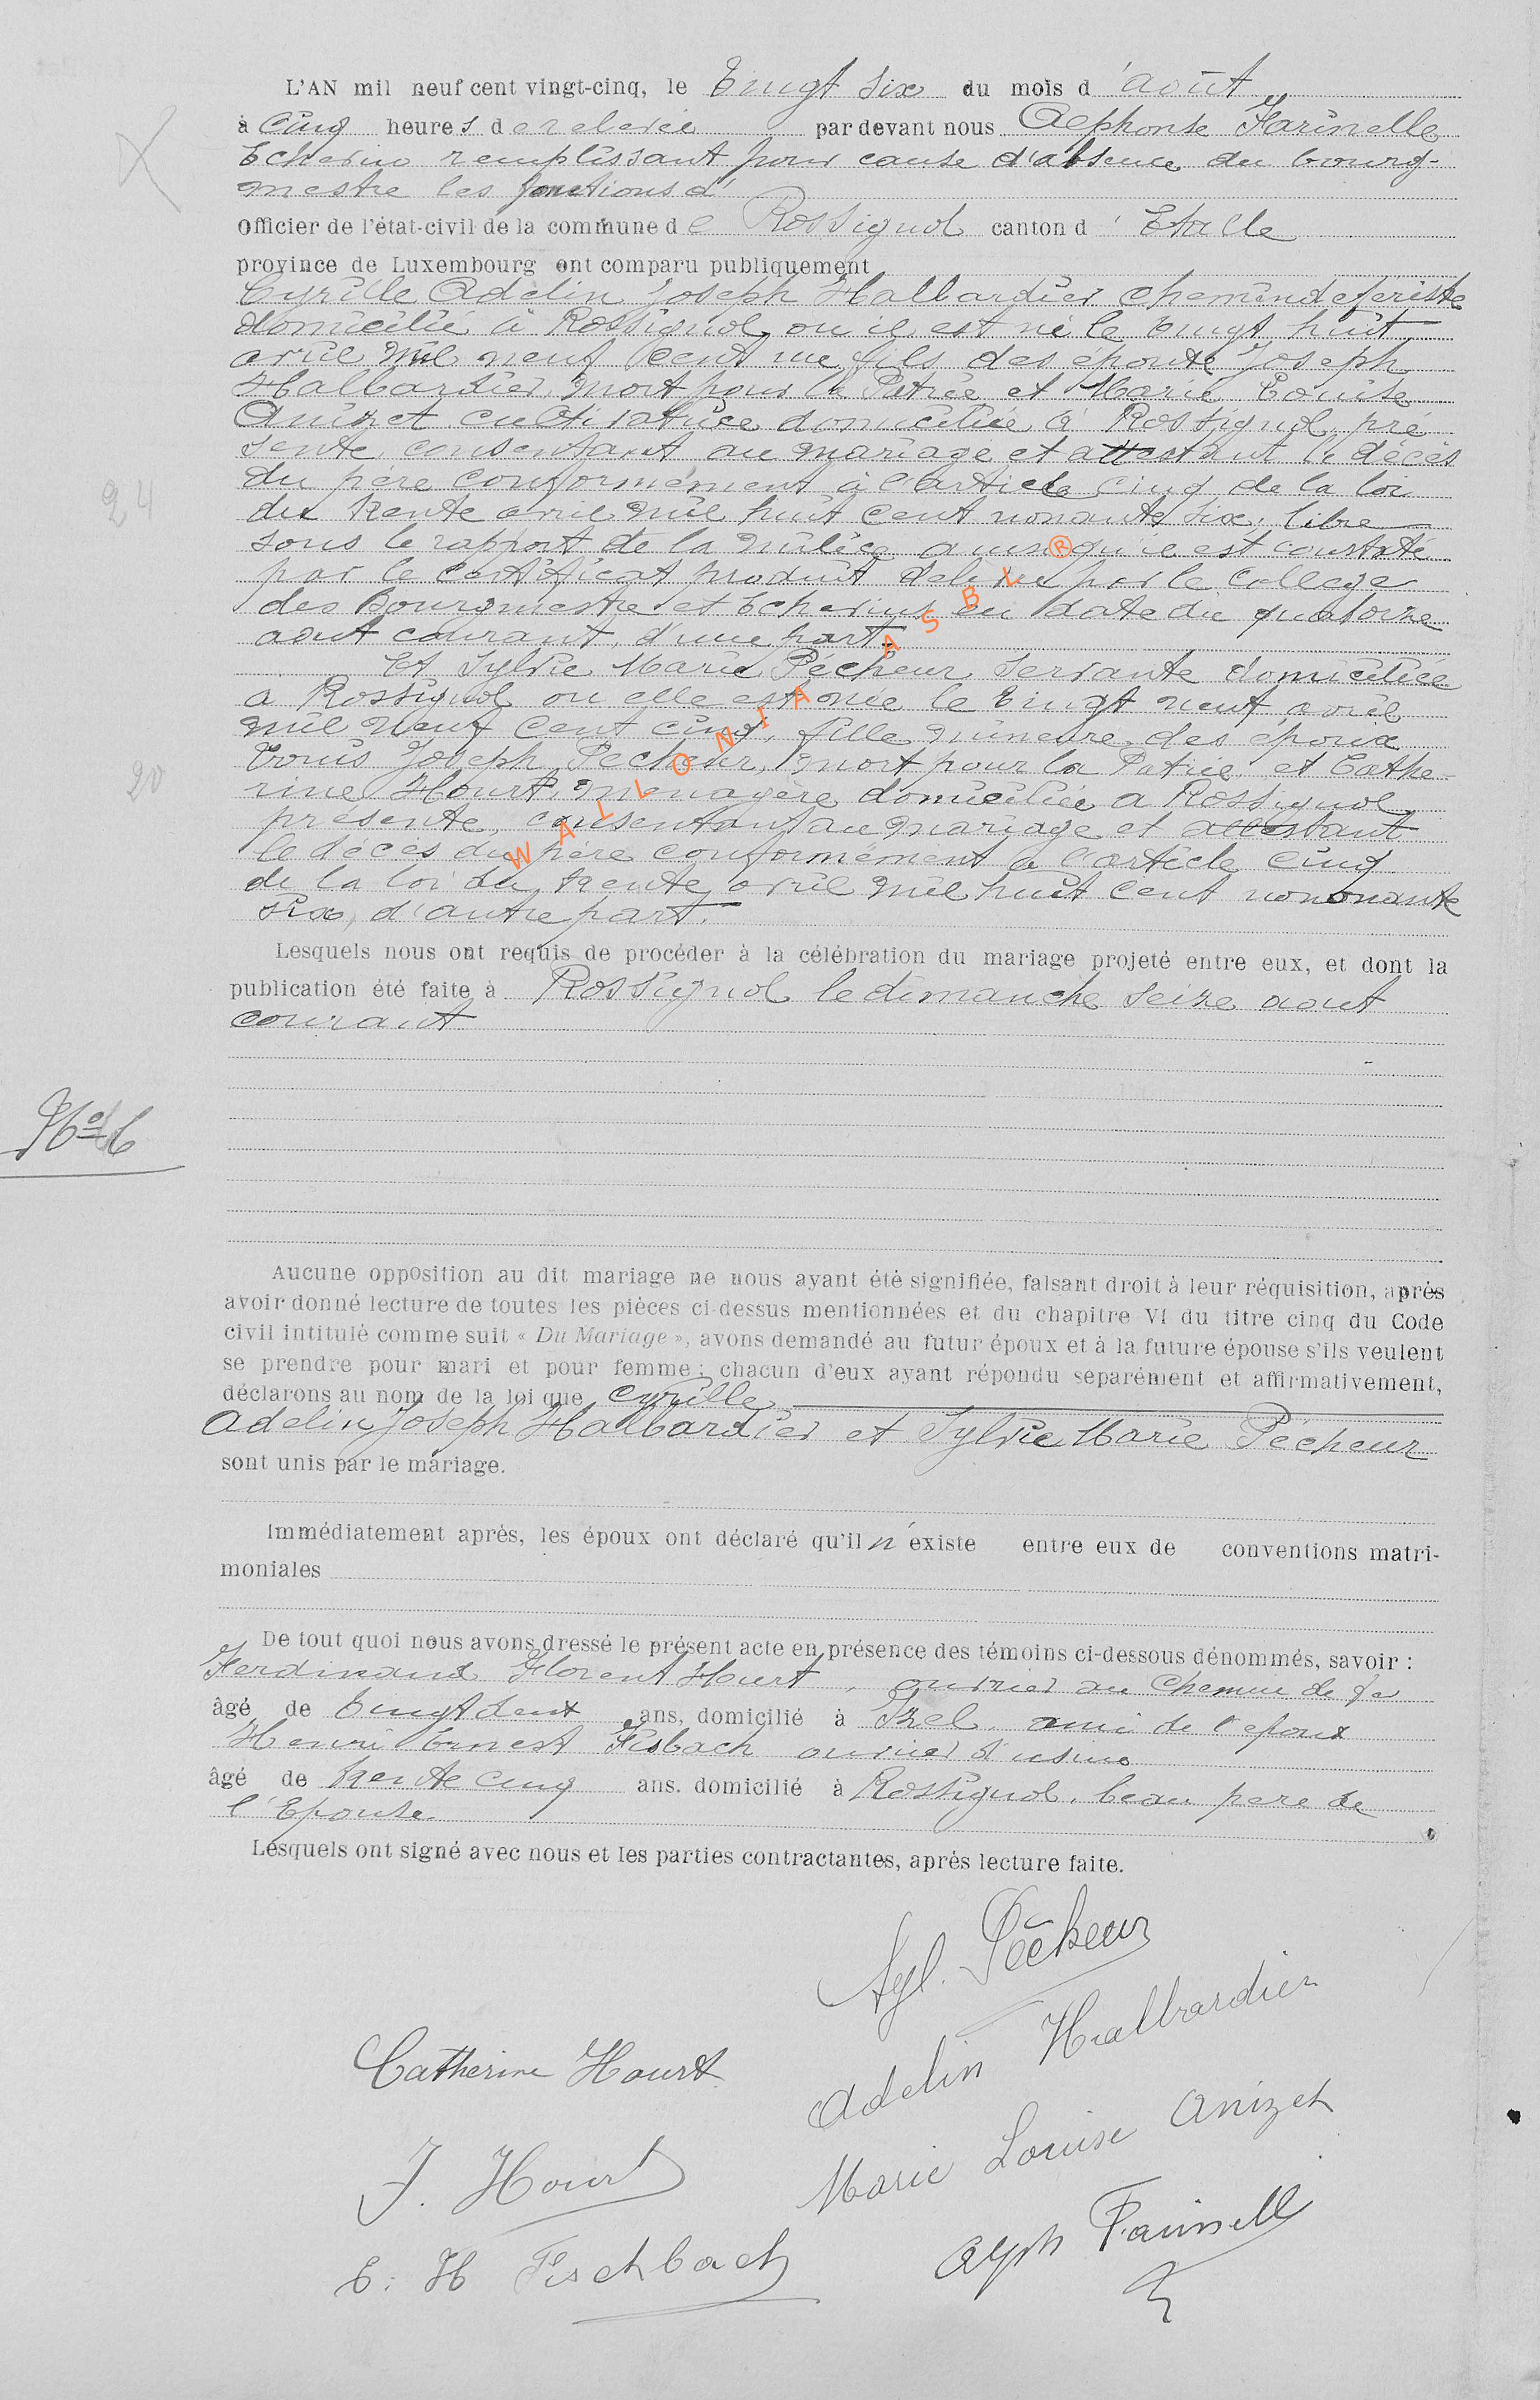 L'AN mil neuf cent vingt-cinq, le Vingt six du mois d'août
à Cinq heures de relevée par devant nous Alphonse Farinelle
Echevin remplissant pour cause d'absence du bourg-
mestre les fonctions d'
Officier de l'état-civil de la commune de Rossignol canton d'Etalle
province de Luxembourg ont comparu publiquement
Cyrille Adelin Joseph Halbardier chemindefériste
domicilié à Rossignol ou il est né le vingt huit
avril mil neuf cent un fils des époux Joseph
Halbardier, mort pour la Patrie et Marie Louise
Anizet cultivatrice domiciliée à Rossignol, pré
sente, consentant au mariage et attestant le décès
du père conformément à l'article cinq de la loi
du trente avril mil huit cent nonante six, libre
sous le rapport de la milice ainsi qu'il est constaté
par le certificat produit délivré par le College
des Bourgmestre et Echevins en date du quatorze
aout courant, d'une part.
Et Sylvie Marie Pécheur servante domiciliée
a Rossignol ou elle est née le vingt neuf avril
mil neuf cent cinq, fille mineure des époux
Louis Joseph Pecheur, mort pour la Patrie et Cathe-
rine Hourt, menagère domiciliée a Rossignol,
présente, consentant au mariage et attestant
le décès du père conformément à l'article cinq
de la loi du trente avril mil huit cent nononante
six, d'autre part.
24
20
WALLONIA ASBL ®
Lesquels nous ont requis de procéder à la célébration du mariage projeté entre eux, et dont la
publication été faite à Rossignol le dimanche seize aout
courant
N° 6
Aucune opposition au dit mariage ne nous ayant été signifiée, faisant droit à leur réquisition, après
avoir donné lecture de toutes les pièces ci-dessus mentionnées et du chapitre VI du titre cinq du Code
civil intitulé comme suit « Du Mariage », avons demandé au futur époux et à la future épouse s'ils veulent
se prendre pour mari et pour femme ; chacun d'eux ayant répondu séparément et affirmativement,
déclarons au nom de la loi que Cyrille
Adelin Joseph Halbardier et Sylvie Marie Pécheur
sont unis par le mariage.
Immédiatement après, les époux ont déclaré qu'il n'existe entre eux de conventions matri-
moniales
De tout quoi nous avons dressé le présent acte en présence des témoins ci-dessous dénommés, savoir :
Ferdinand Florent Hourt, ouvrier au Chemin de fer
âgé de Vingt deux ans, domicilié à Izel, ami de l'époux
Henri Ernest Fisbach ouvrier d'usine
âgé de trente cinq ans. domicilié à Rossignol, beau pere de
l'Epouse.
Lesquels ont signé avec nous et les parties contractantes, après lecture faite.
Syl. Pêcheur
Catherine Hourt
Adelin Halbardier
F. Hourt
Marie Louise Anizet
E. H Fischbach
Alph Farinelle